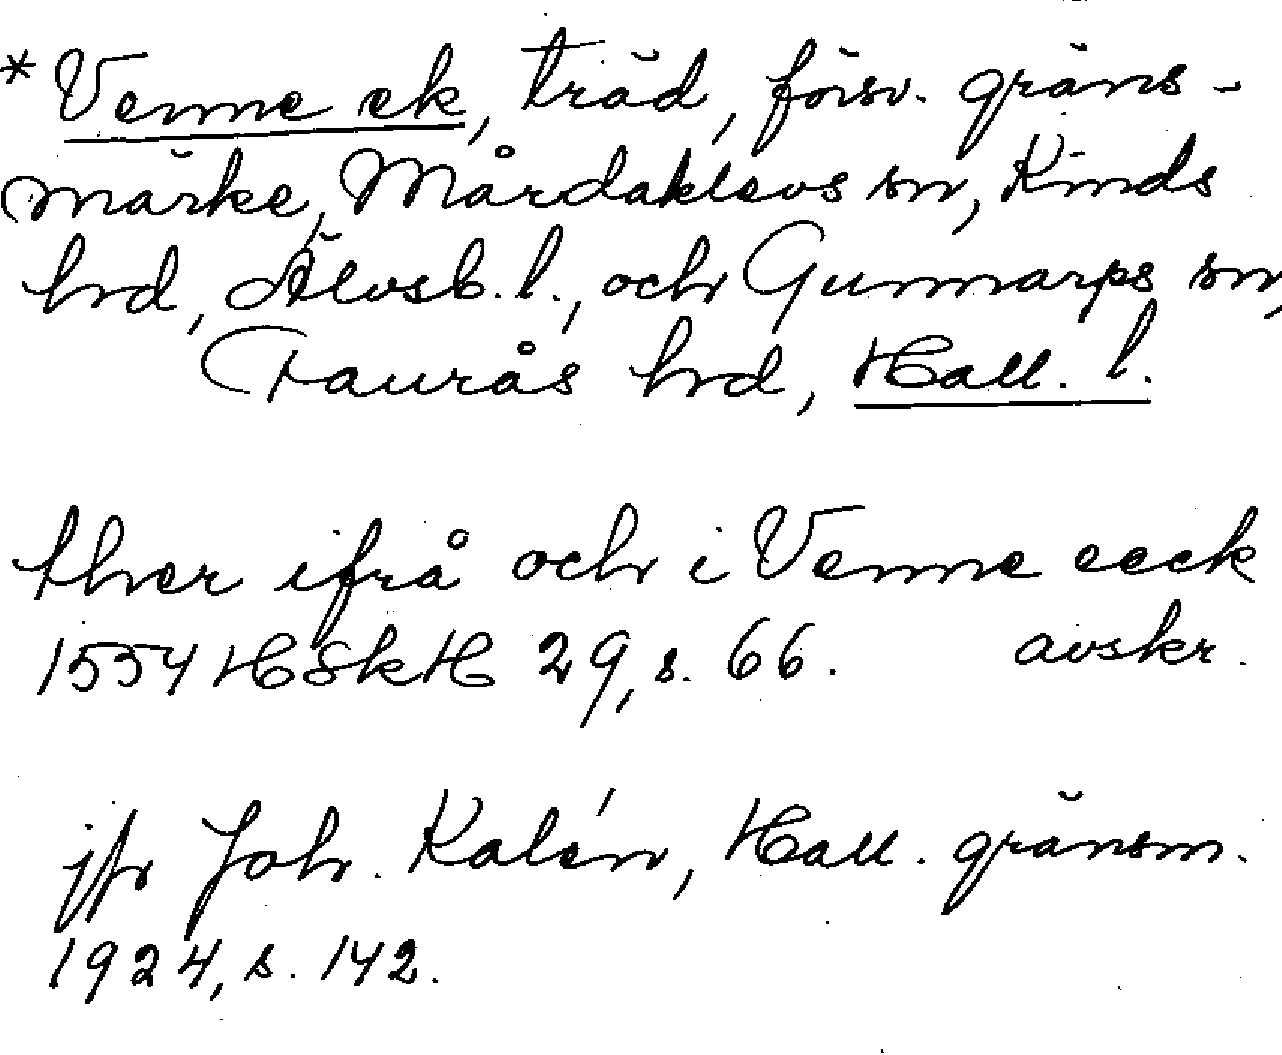 *Venne ek, träd, försv. gräns-
märke, Mårdaklevs sn, Kinds
hrd, Älvsb. l., och Gunnarps sn,
Faurås hrd, Hall. l.
ther ifrå och i Venne eeck
1554 HSkH 29, s. 66. avskr.
jfr Joh. Kalén, Hall. gränsm.
1924, s. 142.